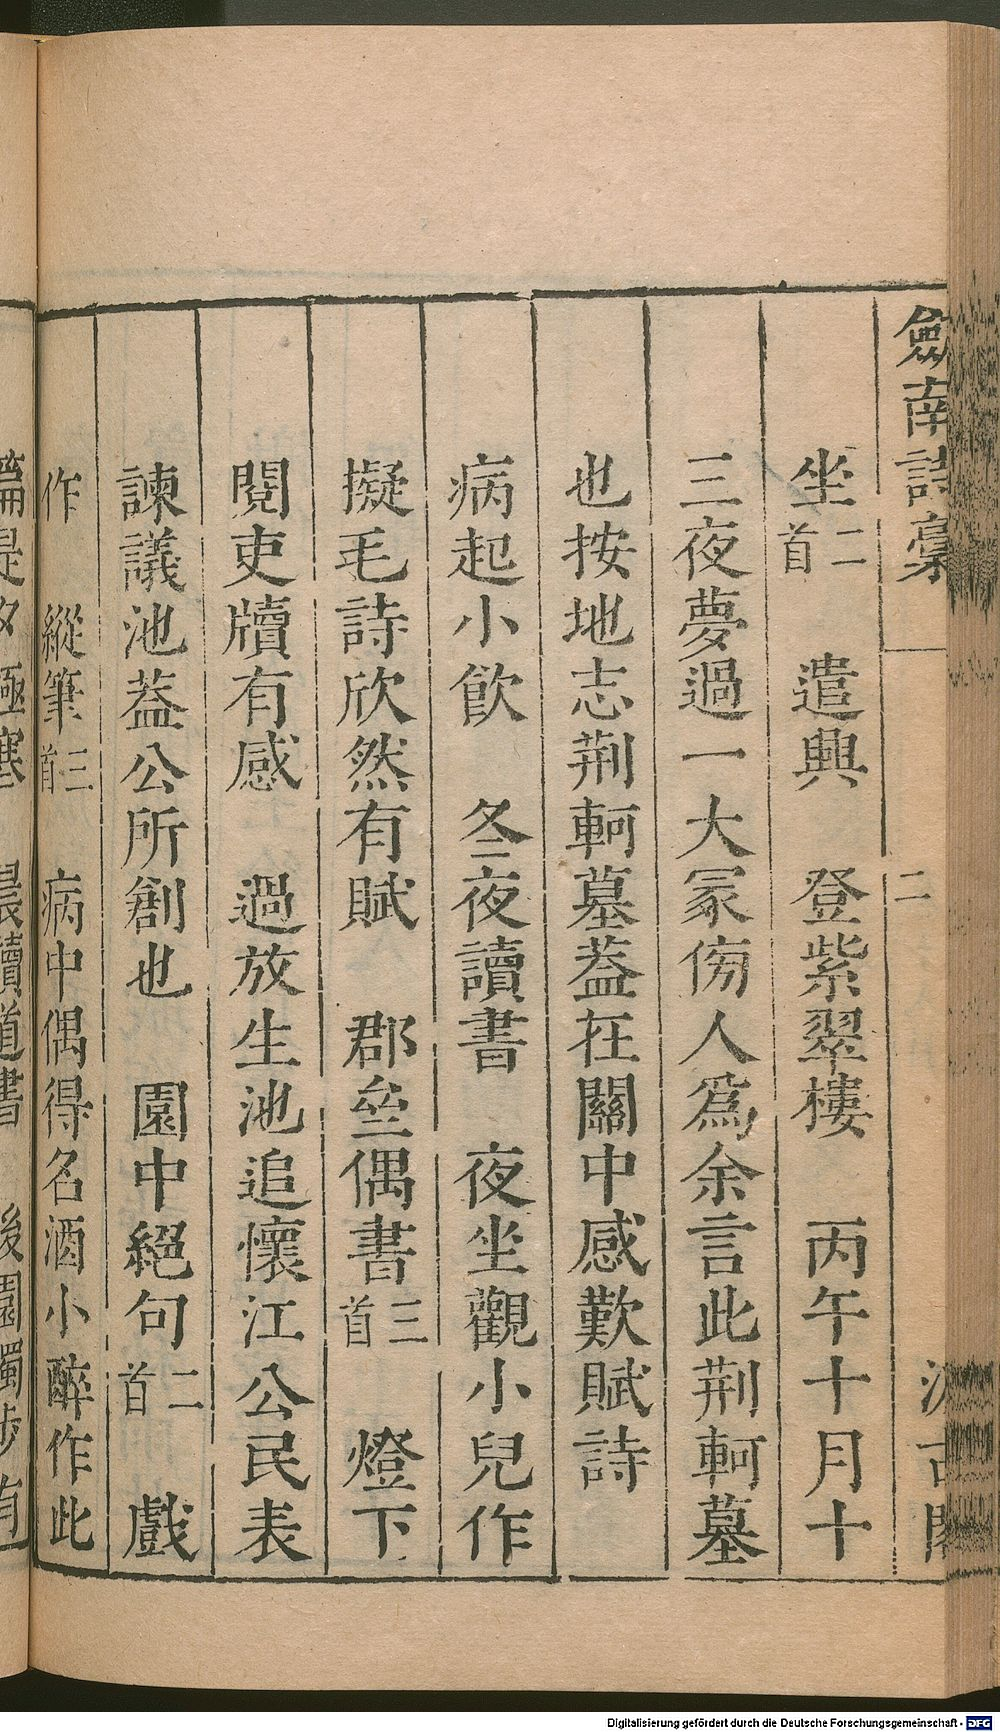 劔南詩稾
二
汲古閣
坐二首　遣興　登紫翠樓　丙午十月十
三夜夢過一大冢傍人爲余言此荆軻墓
也按地志荆軻墓葢在關中感歎賦詩
病起小飮　冬夜讀書　夜坐觀小兒作
擬毛詩欣然有賦　郡垒偶書三首　燈下
閱吏牘有感　過放生池追懷江公民表
諫議池葢公所創也　園中絕句二首　戲
作　縱筆三首　病中偶得名酒小醉作此
篇是夕極寒　晨讀道書　後園獨步有
Digitalisierung gefördert durch die Deutsche Forschungsgemeinschaft - DFG